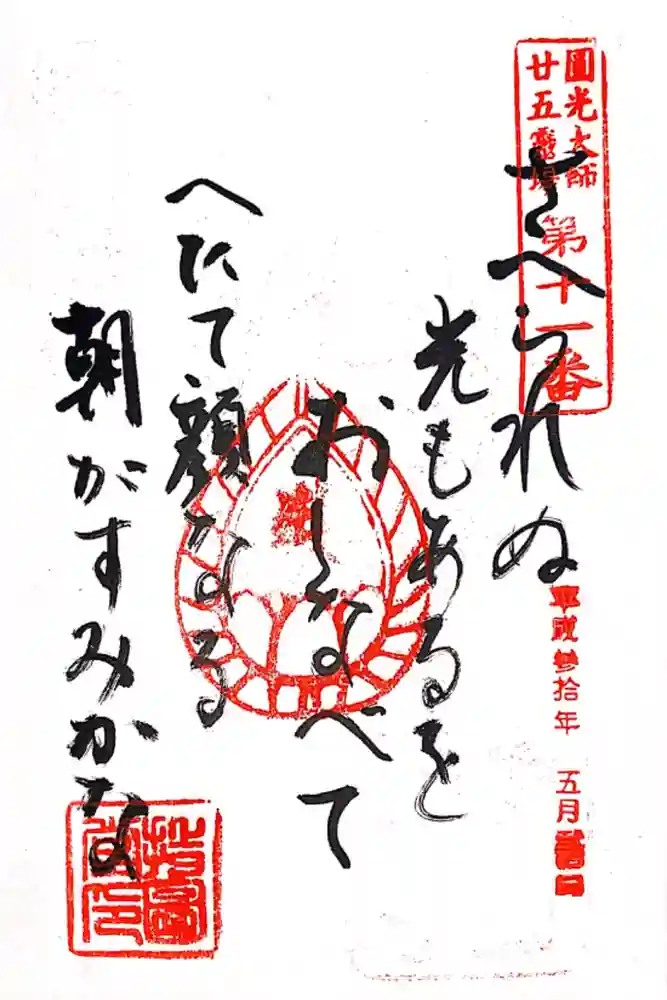 圓光大師
廿五霊場
第十一番
さへられぬ
光もあるを
おしなべて
へだて顔なる
朝がすみかな
平成参拾年
五月